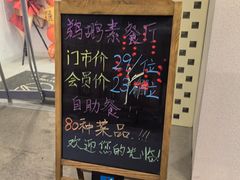 鹅鹕素餐厅
门市价29/位
会员价23/位
自助餐
80种菜品.!!!
欢迎您的光临!